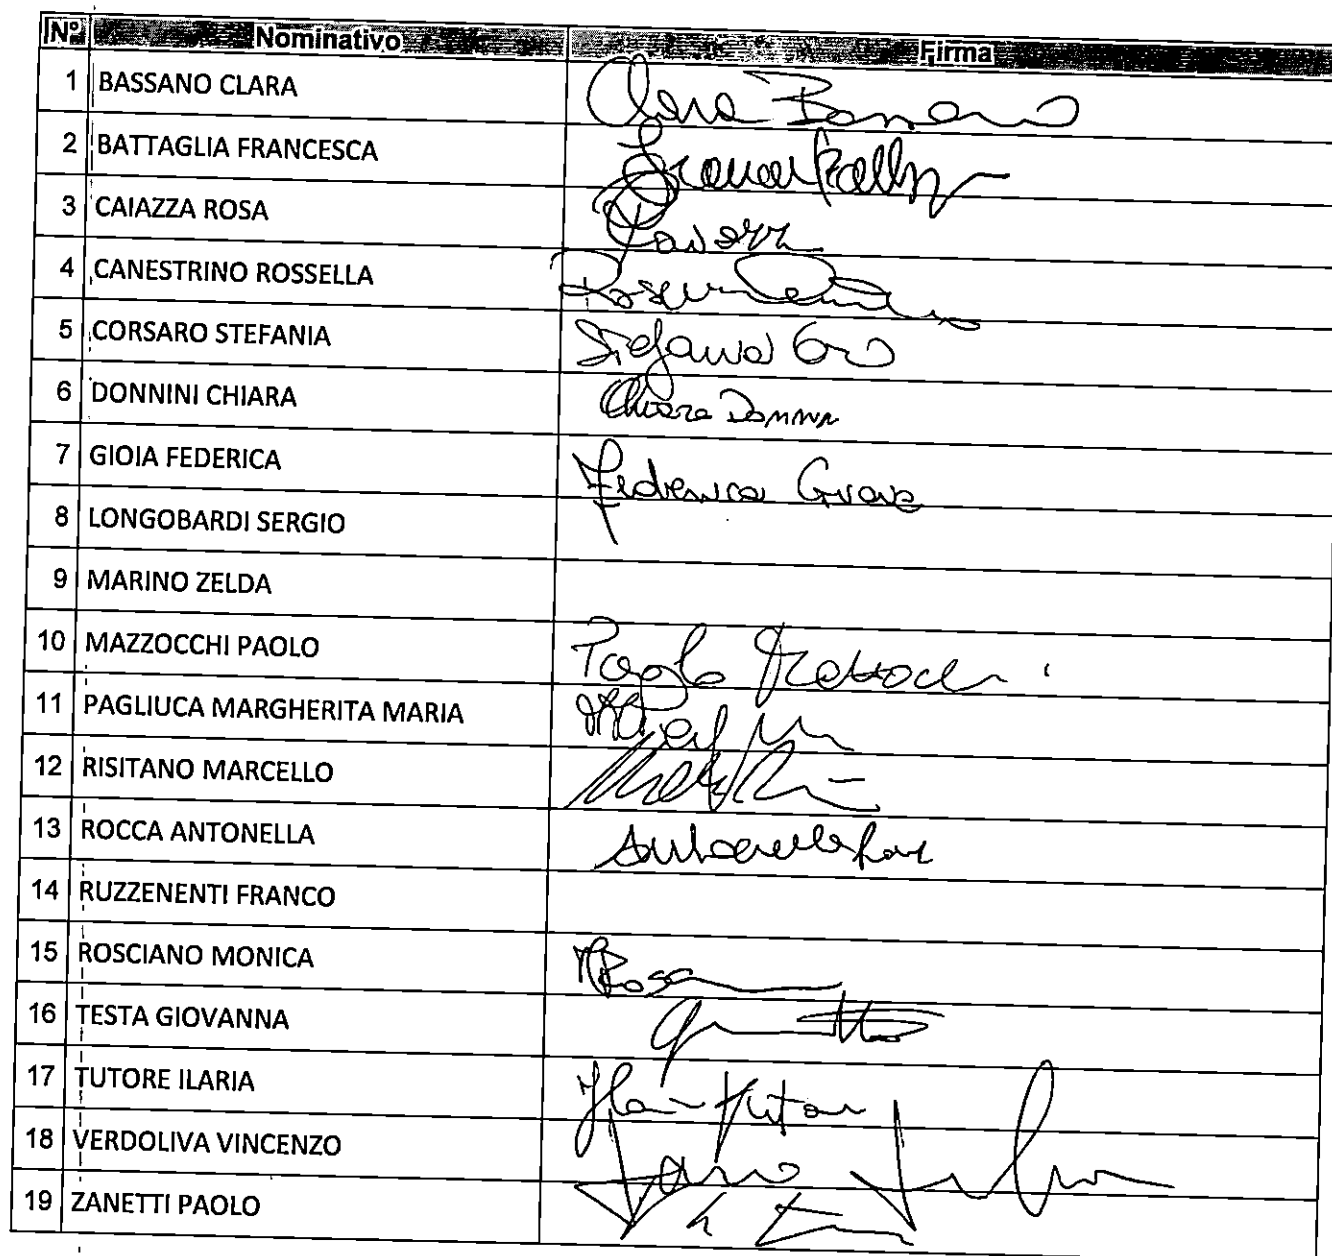 Nº Nominativo Firma
1 BASSANO CLARA Clara Bassano
2 BATTAGLIA FRANCESCA
3 CAIAZZA ROSA
4 CANESTRINO ROSSELLA
5 CORSARO STEFANIA Stefania
6 DONNINI CHIARA Chiara Donnini
7 GIOIA FEDERICA Federica Gioia
8 LONGOBARDI SERGIO
9 MARINO ZELDA
10 MAZZOCCHI PAOLO Paolo Mazzocchi
11 PAGLIUCA MARGHERITA MARIA
12 RISITANO MARCELLO
13 ROCCA ANTONELLA Antonella
14 RUZZENENTI FRANCO
15 ROSCIANO MONICA
16 TESTA GIOVANNA
17 TUTORE ILARIA Ilaria Tutore
18 VERDOLIVA VINCENZO
19 ZANETTI PAOLO